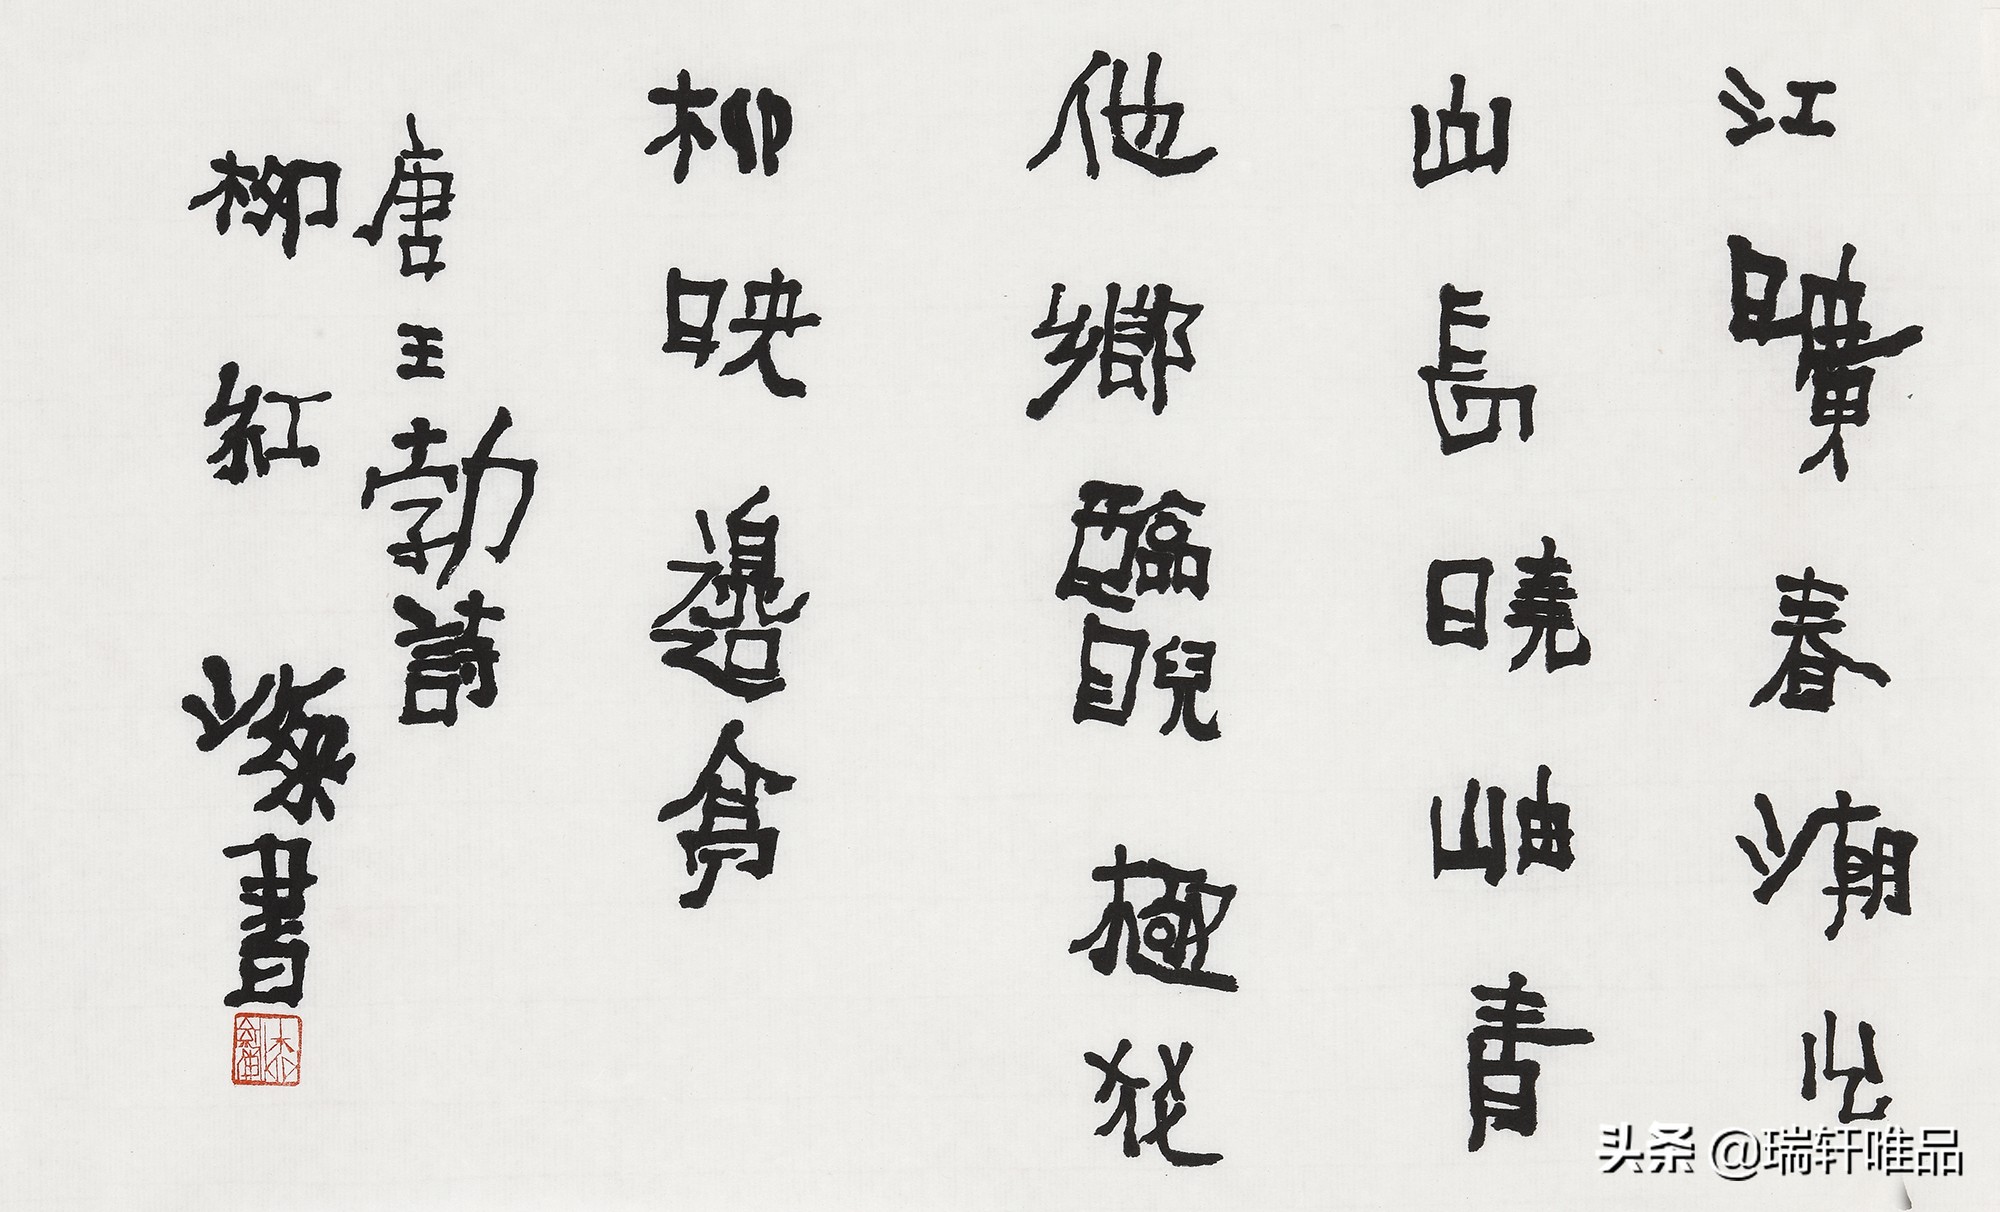 江曠春潮
山長曉岫青
他鄉臨睨極花
柳映邊亭
唐王勃詩
柳紅書
头条 @瑞轩唯品